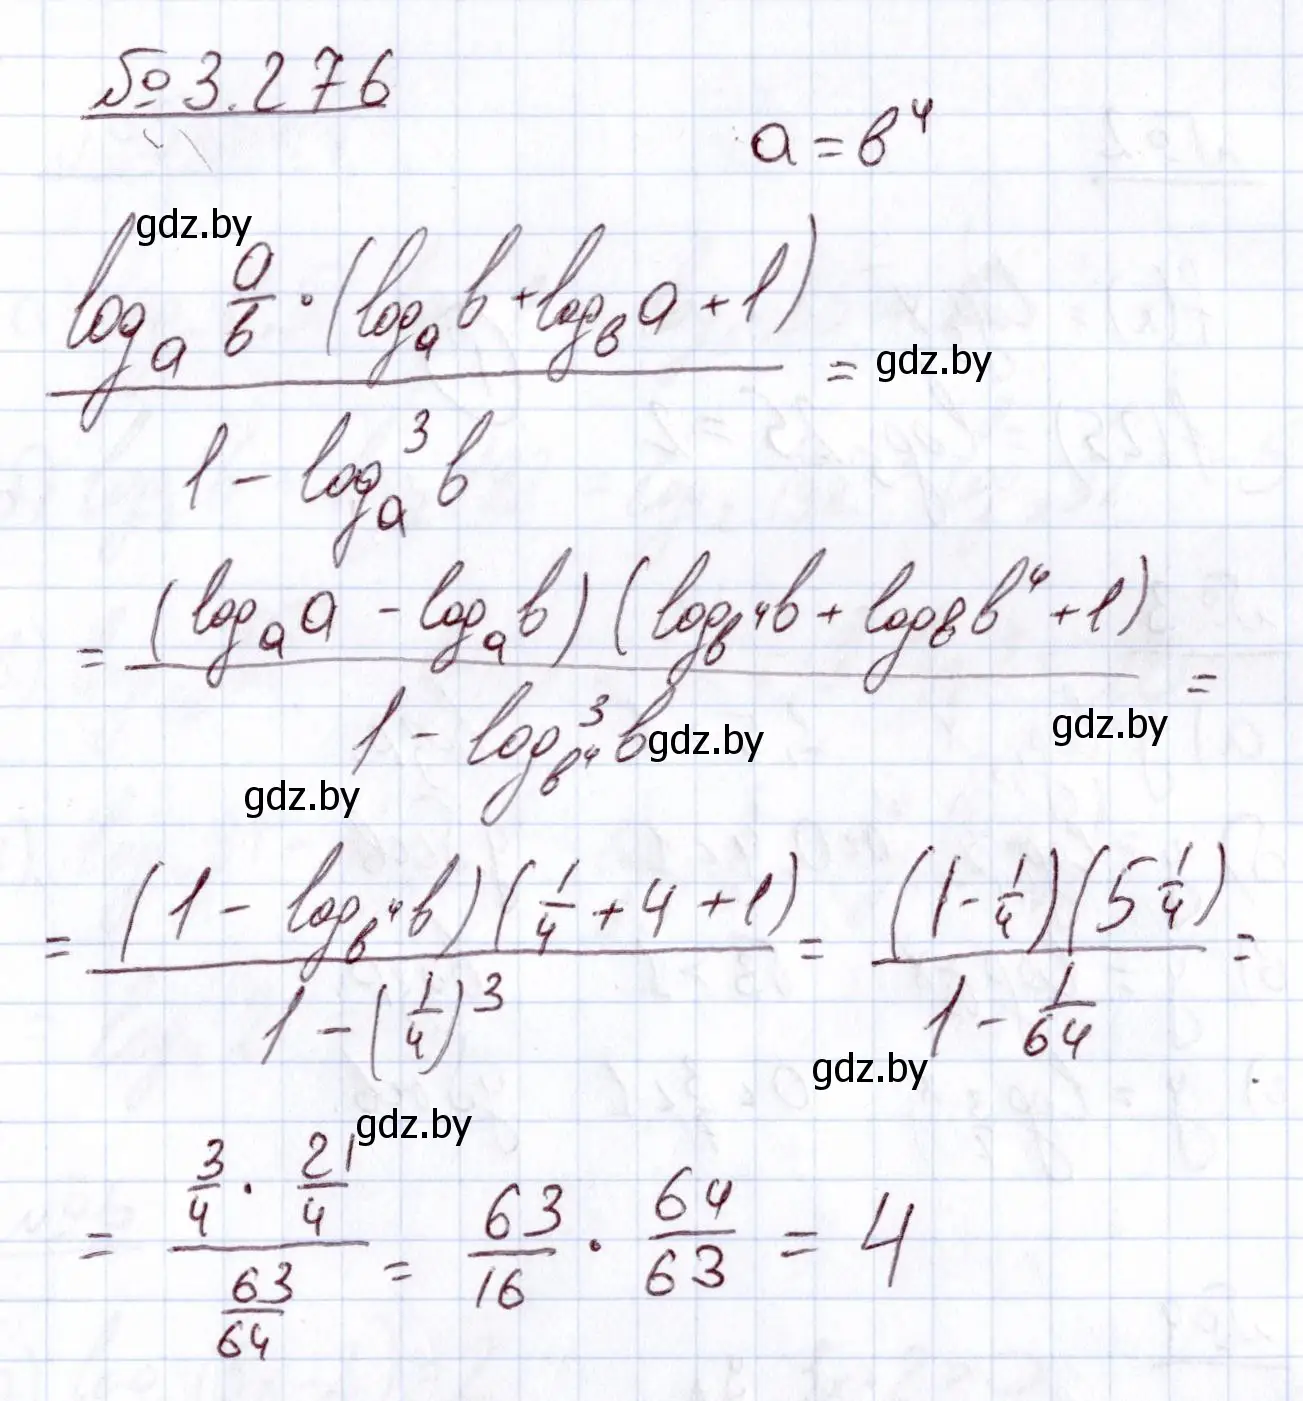 № 3.276
a = b⁴
gdz.by
log_a a/b · (log_a b + log_b a + 1) / (1 - log_a³ b) = gdz.by
= (log_a a - log_a b)(log_b⁴ b + log_b b⁴ + 1) / (1 - log³_b⁴ b) =
gdz.by gdz.by
gdz.by
= (1 - log_b⁴ b)(1/4 + 4 + 1) / (1 - (1/4)³) = (1 - 1/4)(5 1/4) / (1 - 1/64) =
gdz.by
gdz.by
= (3/4 · 21/4) / (63/64) = 63/16 · 64/63 = 4